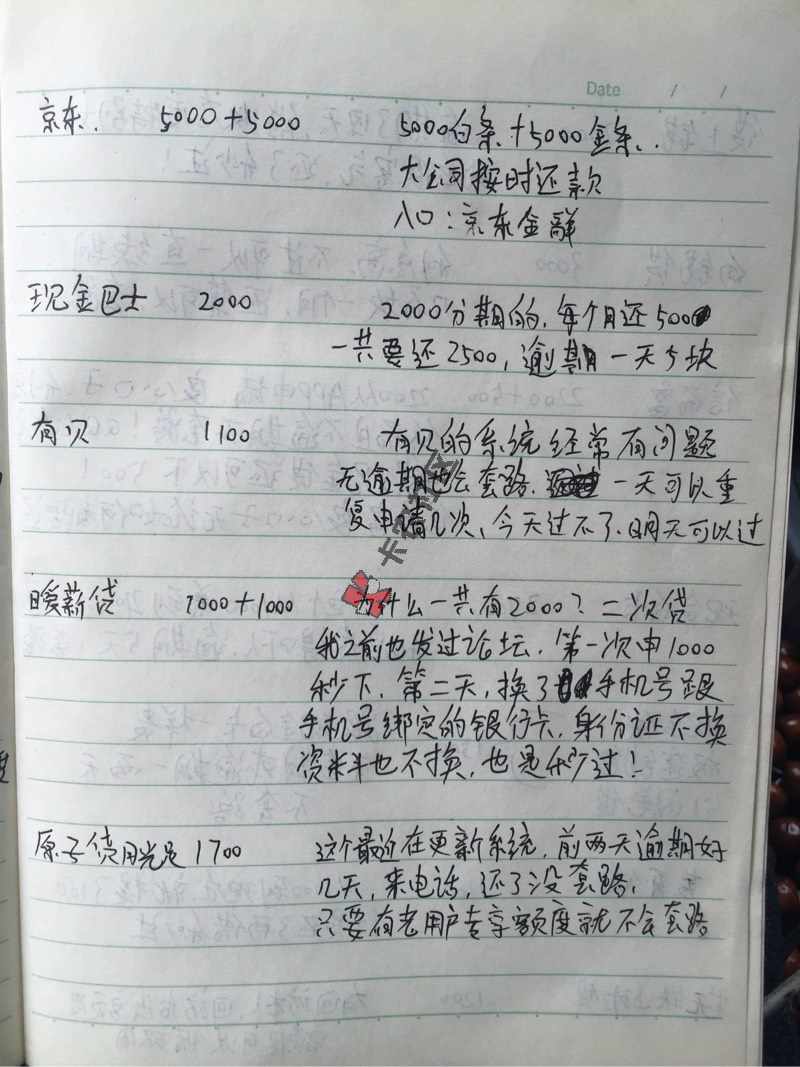 Date / /
京东. 5000+5000 5000白条+5000金条..
大公司按时还款
入口:京东金融
现金巴士 2000 2000分期的,每个月还500
一共要还2500,逾期一天5块
有贝 1100 有贝的系统经常有问题
无逾期也会套路. 一天可以重
复申请几次、今天过不了.明天可以过
暖薪贷 1000+1000 为什么一共有2000?二次贷
我之前也发过论坛.第一次申1000
秒下,第二天,换了手机号跟
手机号绑定的银行卡,身份证不换
资料也不换,也是秒过!
原子贷 1700 这个最近在更新系统,前两天逾期好
几天,来电话,还了没套路,
只要有老用户专享额度就不会套路
卡农社区